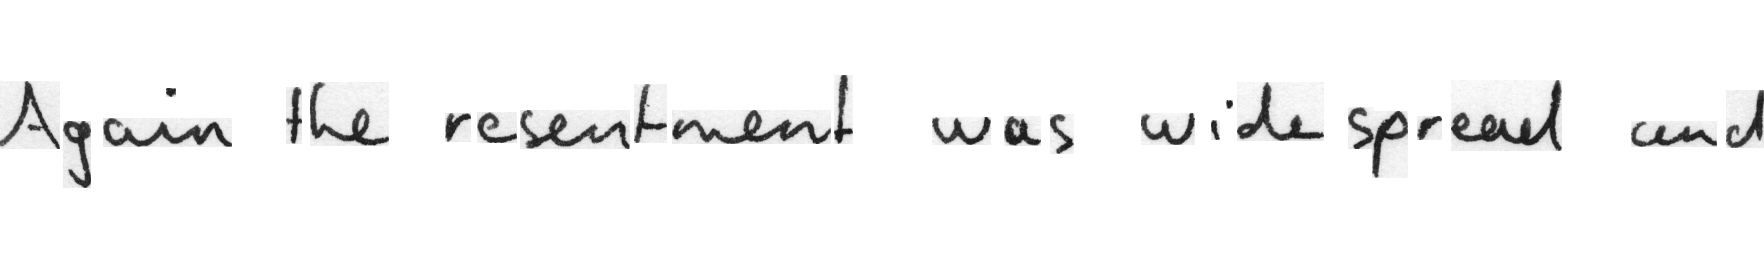 Again the resentment was widespread and